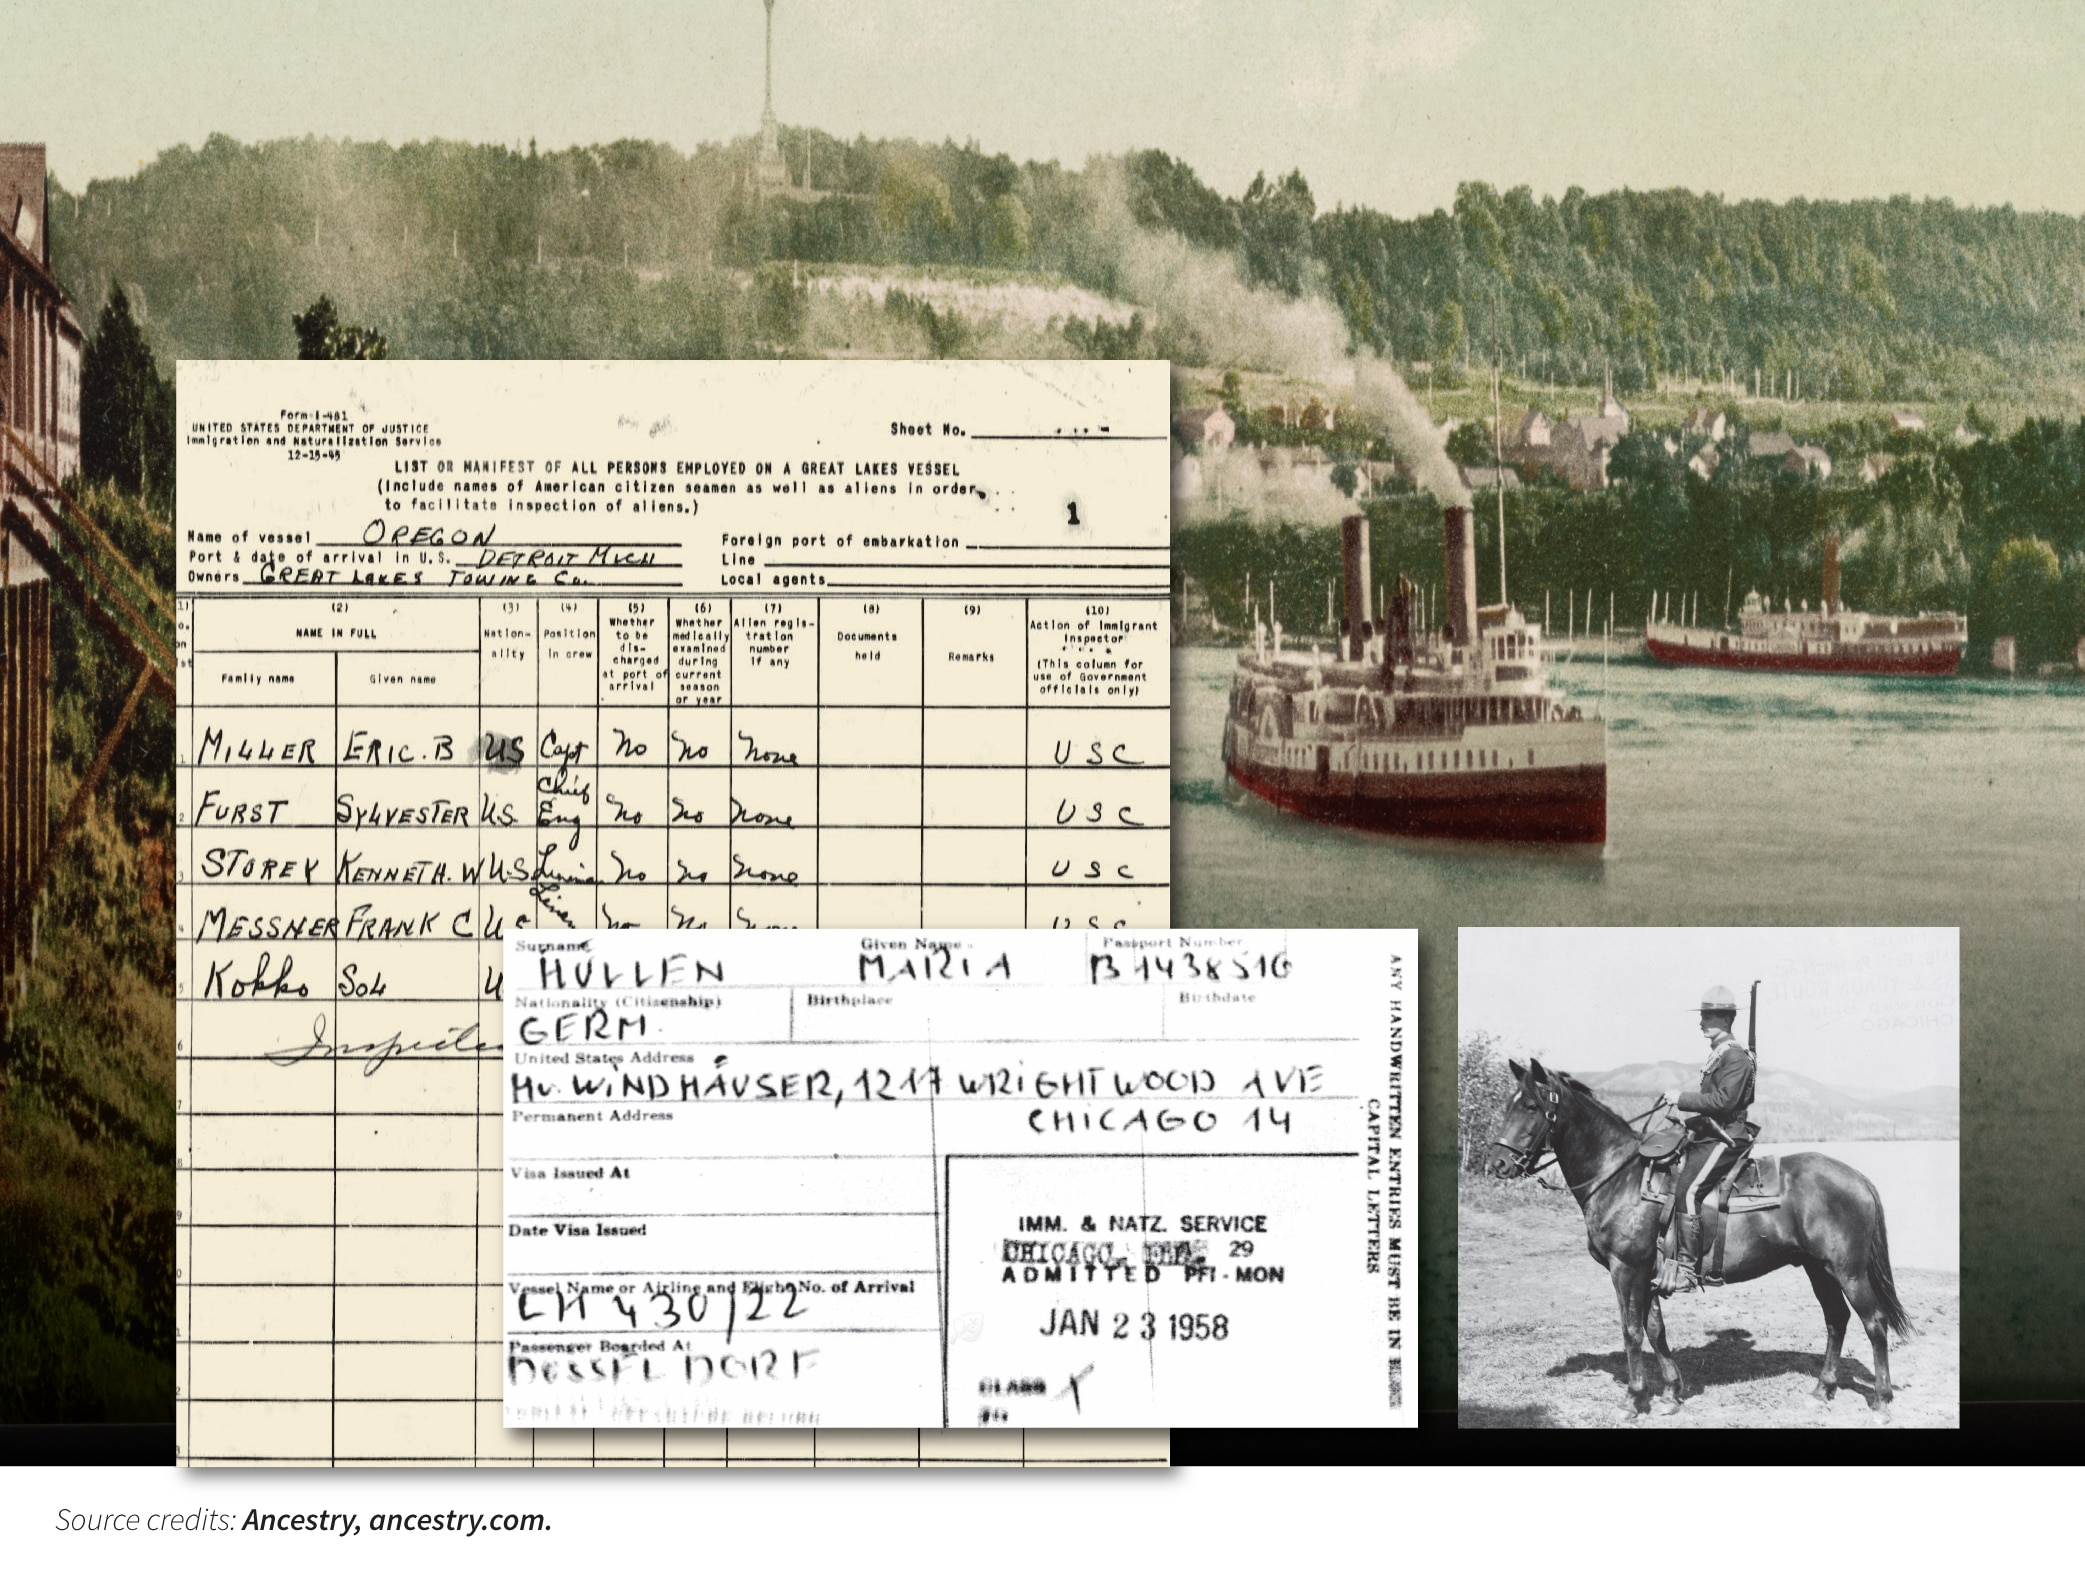 Form I-481
UNITED STATES DEPARTMENT OF JUSTICE
Immigration and Naturalization Service
12-15-45
Sheet No.
LIST OR MANIFEST OF ALL PERSONS EMPLOYED ON A GREAT LAKES VESSEL
(Include names of American citizen seamen as well as aliens in order
to facilitate inspection of aliens.)
1
Name of vessel OREGON
Foreign port of embarkation
Port & date of arrival in U.S. DETROIT MICH
Line
Owners GREAT LAKES TOWING Co.
Local agents
(2) (3) (4) (5) (6) (7) (8) (9) (10)
NAME IN FULL
Family name
Given name
Nation-
ality
Position
in crew
Whether
to be
dis-
charged
at port of
arrival
Whether
medically
examined
during
current
season
or year
Alien regis-
tration
number
if any
Documents
held
Remarks
Action of Immigrant
Inspector
(This column for
use of Government
officials only)
1 MILLER ERIC. B US Capt No No None U S C
2 FURST SYLVESTER U.S. Chief Eng No No None U S C
3 STOREY KENNETH. W U.S No No None U S C
4 MESSNER FRANK C
5 Kokko SOL
6
7
8
9
Surname HULLEN
Given Name MARIA
Passport Number
Nationality (Citizenship) GERM.
Birthplace
Birthdate
United States Address
WINDHÄUSER, 1217 WRIGHTWOOD AVE
CHICAGO 14
Permanent Address
Visa Issued At
Date Visa Issued
Vessel Name or Airline and Flight No. of Arrival
LH 430/22
Passenger Boarded At
DÜSSELDORF
IMM. & NATZ. SERVICE
CHICAGO, ILL. 29
ADMITTED PFI - MON
JAN 23 1958
CLASS
ANY HANDWRITTEN ENTRIES MUST BE IN
CAPITAL LETTERS
Source credits: Ancestry, ancestry.com.